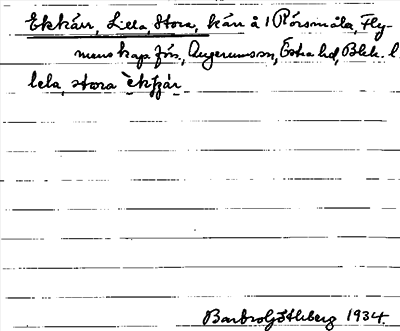 Ekkärr, Lilla, Stora, kärr å 1 Pörsmåla, Fly-
mens kap. förs., Augerums sn, Östra hd, Blek. l.
lela, stora
Barbro Göthberg 1934.